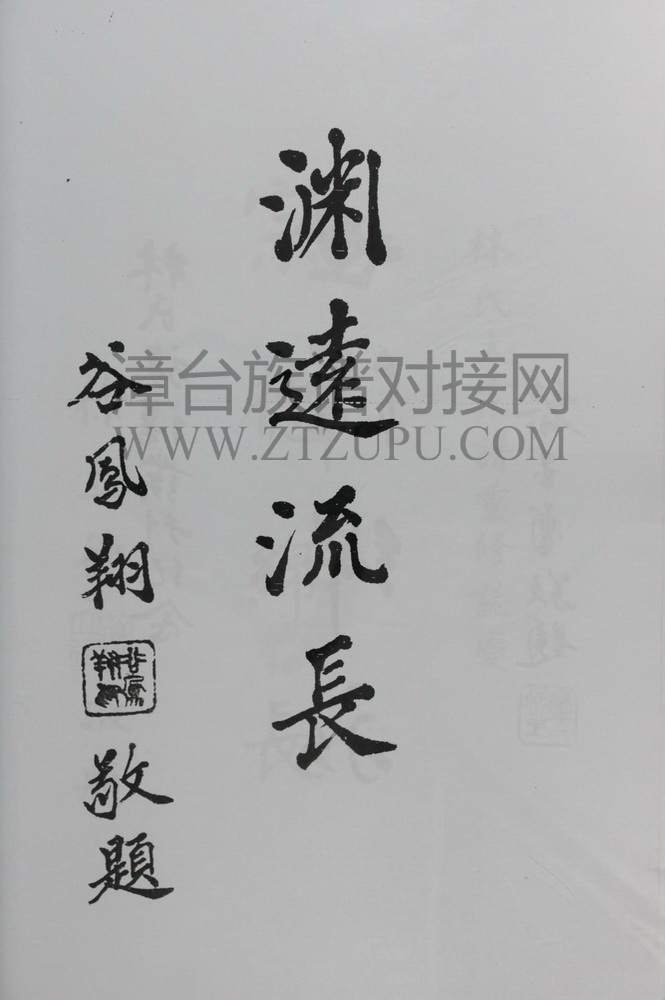 渊遠流長
谷鳳翔
敬題
漳台族谱对接网
WWW.ZTZUPU.COM